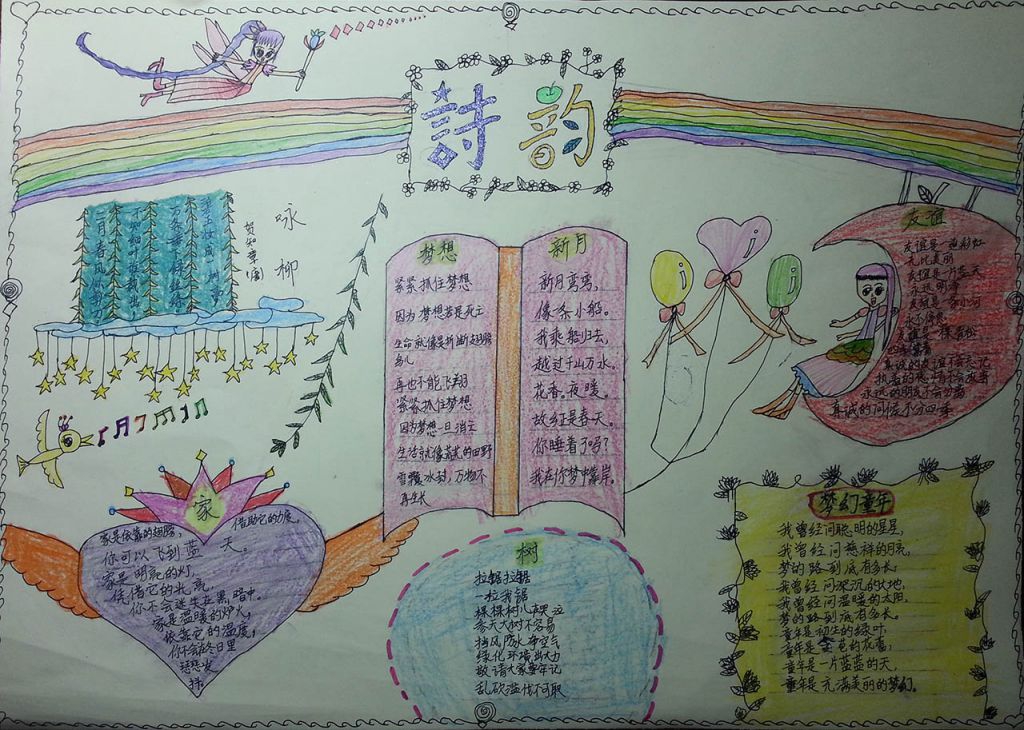 詩韵
咏柳
贺知章(唐)
二月春风
梦想
紧紧抓住梦想
因为梦想若是死亡
生命就像是折断翅膀
鸟儿
再也不能飞翔
紧紧抓住梦想
因为梦想一旦消亡
生活就像荒芜的田野
雪覆冰封,万物不
再生长
新月
新月弯弯,
像条小船。
我乘船归去,
越过千山万水。
花香。夜暖。
故乡正是春天。
你睡着了吗?
我在你梦中靠岸。
友谊
友谊是一道彩虹
真诚的问候不分四季
家
家是依靠的翅膀,
借助它的力度。
你可以飞到蓝天。
家是明亮的灯,
凭借它的光亮,
你不会迷失在黑暗中
家是温暖的炉火,
依靠它的温度,
你不会在冬日里
瑟瑟发
抖
树
拉锯拉锯
一拉我锯
冬天大树不容易
挡风防水净空气
绿化环境出大力
敬请大家要牢记
乱砍滥伐不可取
梦幻童年
我曾经问聪明的星星,
我曾经问慈祥的月亮,
梦的路到底有多长;
我曾经问深沉的大地,
我曾经问温暖的太阳,
梦的路到底有多长。
童年是初生的绿叶,
童年是金色的花蕾,
童年是一片蓝蓝的天,
童年是充满美丽的梦幻。